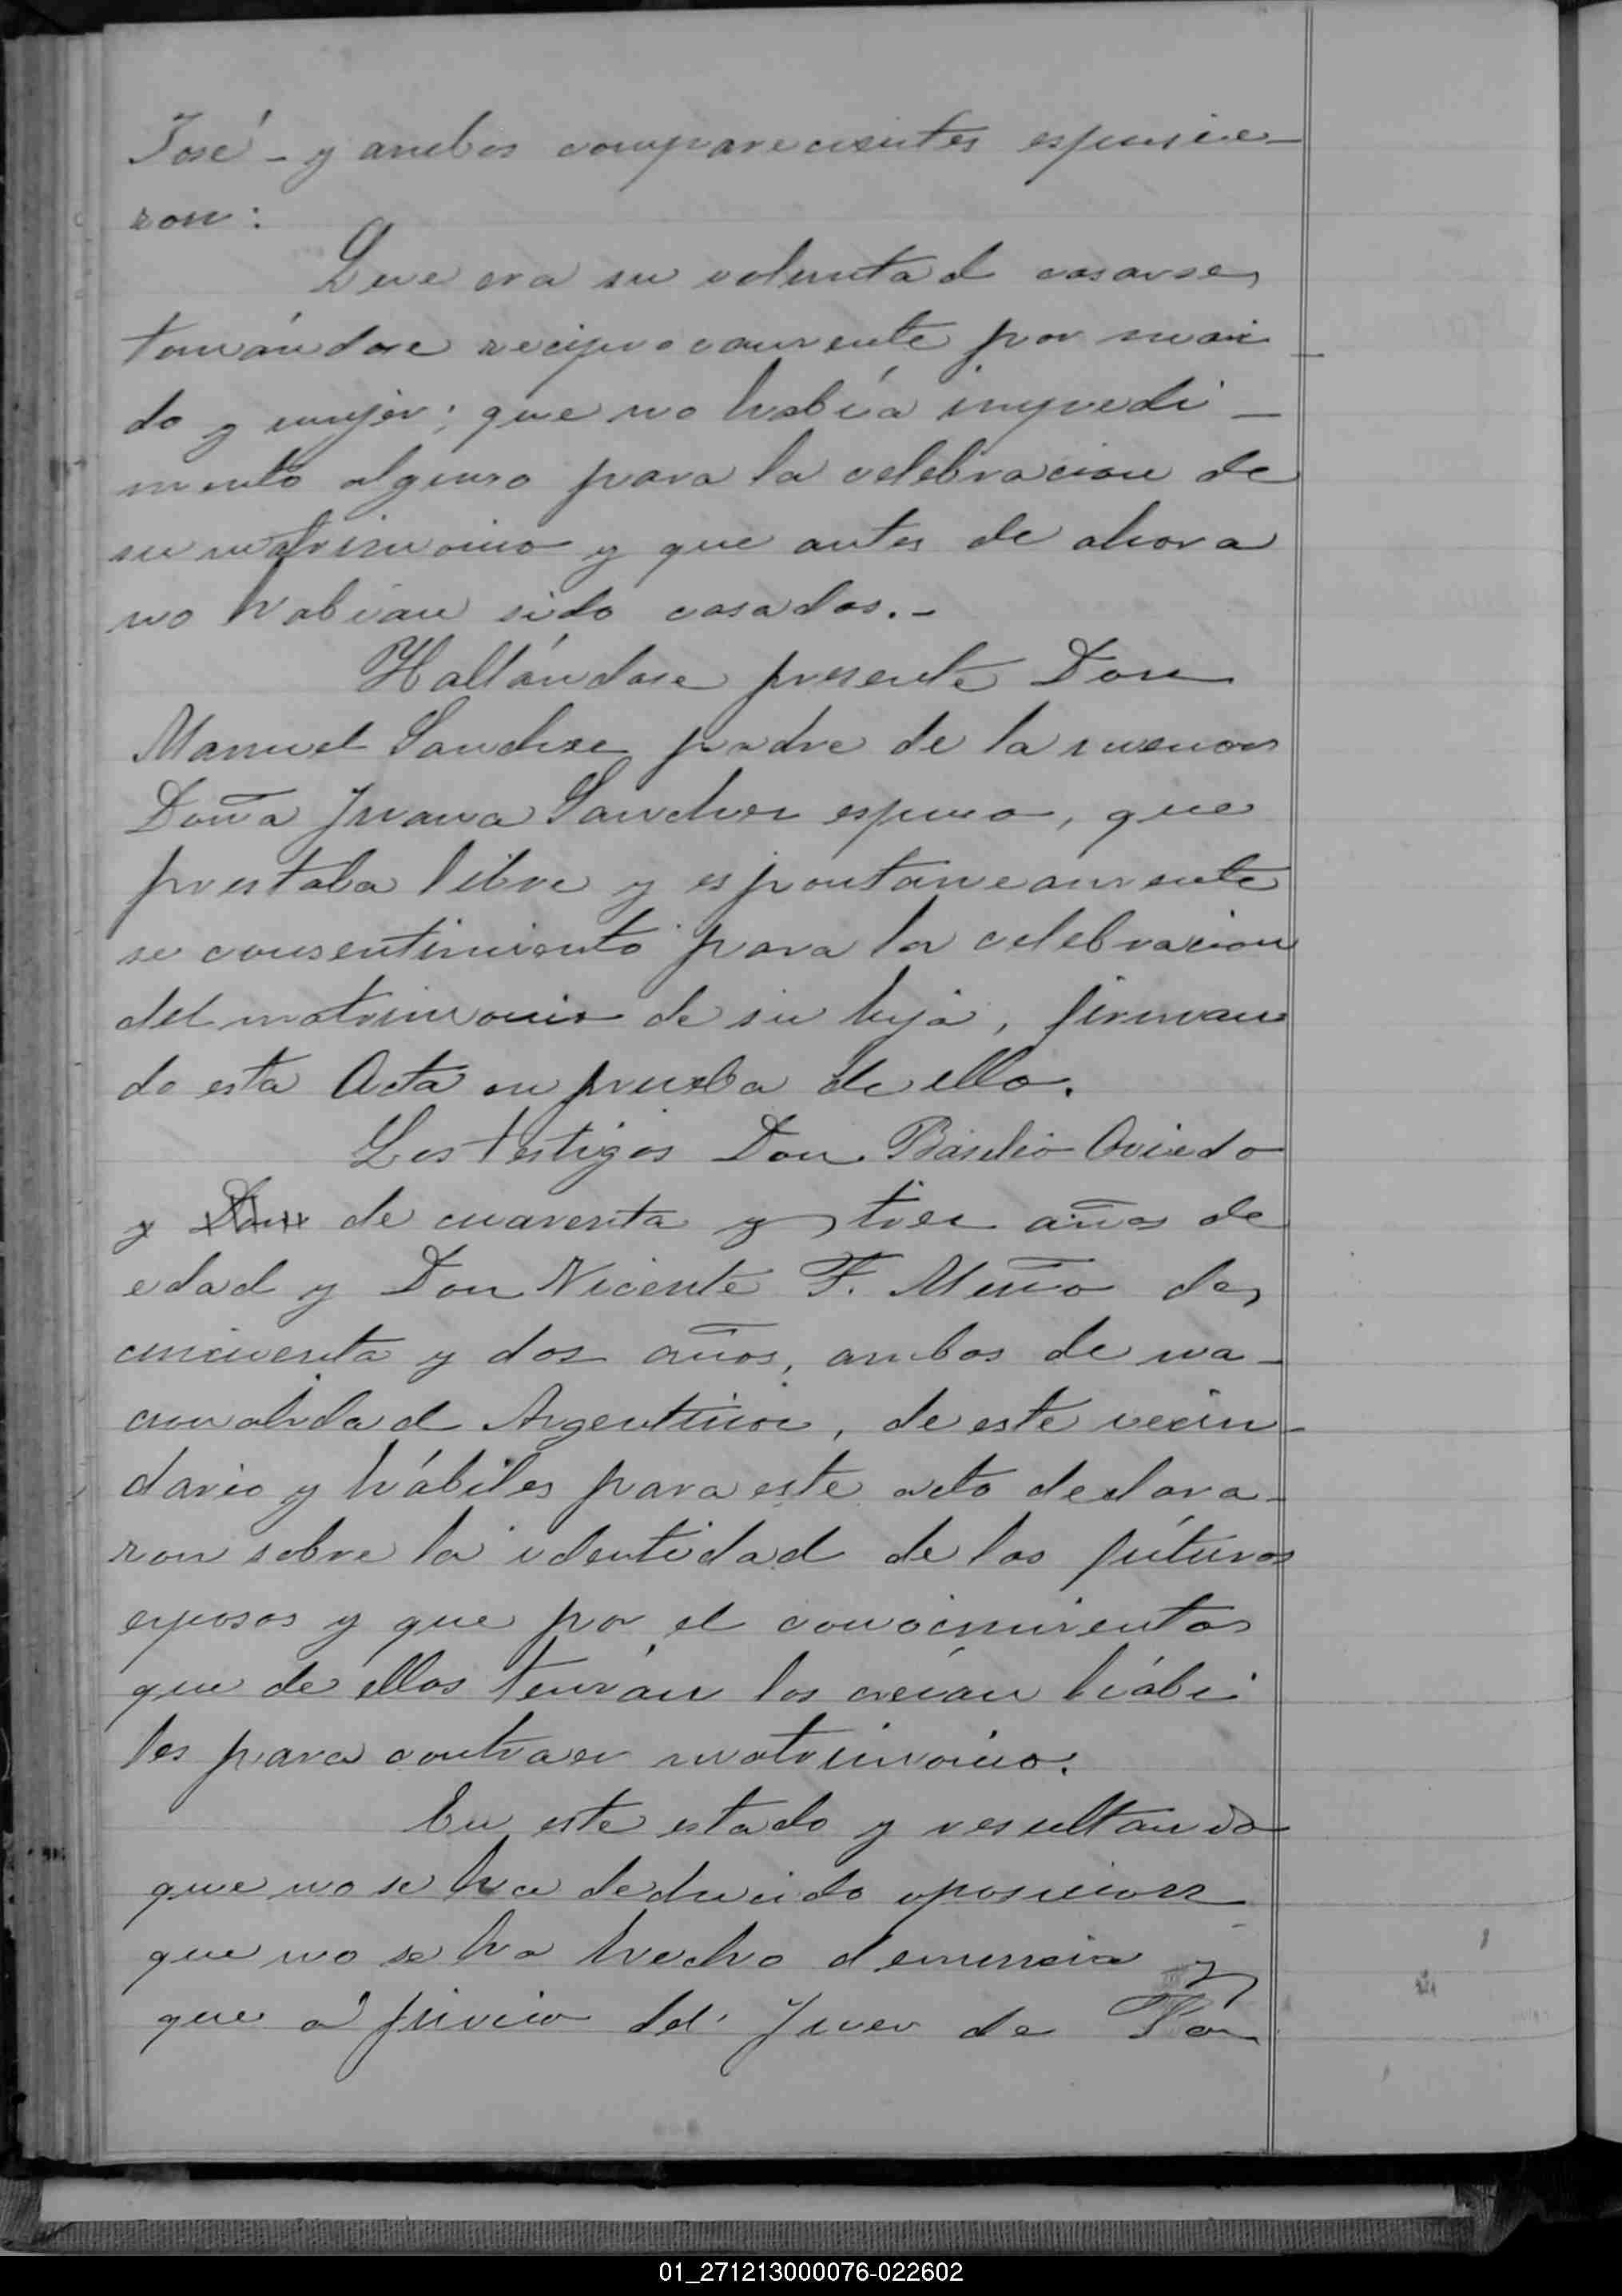 José - y ambos comparecientes espusie-
ron:
Que era su voluntad casarse,
tomándose reciprocamente por mari
do y mujer; que no había impedi-
mento alguno para la celebracion de
su matrimonio y que antes de ahora
no habian sido casados.-
Hallándose presente Don
Manuel Sanchez padre de la menor
Doña Juana Sanchez espuso, que
prestaba libre y espontaneamente
su consentimiento para la celebracion
del matrimonio de su hija, firman
do esta Acta en prueba de ello.
Los testigos Don Basilio Oviedo
y Don de cuarenta y tres años de
edad y Don Vicente F. de
cincuenta y dos años, ambos de na-
cionalidad Argentinos, de este vecin-
dario y hábiles para este acto declara-
ron sobre la identidad de los futuros
esposos y que por el conocimientos
que de ellos tenían los creían hábi
les para contraer matrimonio.
En este estado y resultando
que no se ha deducido oposicion
que no se ha hecho denuncia y
que a juicio del Juez de Paz
01_271213000076-022602